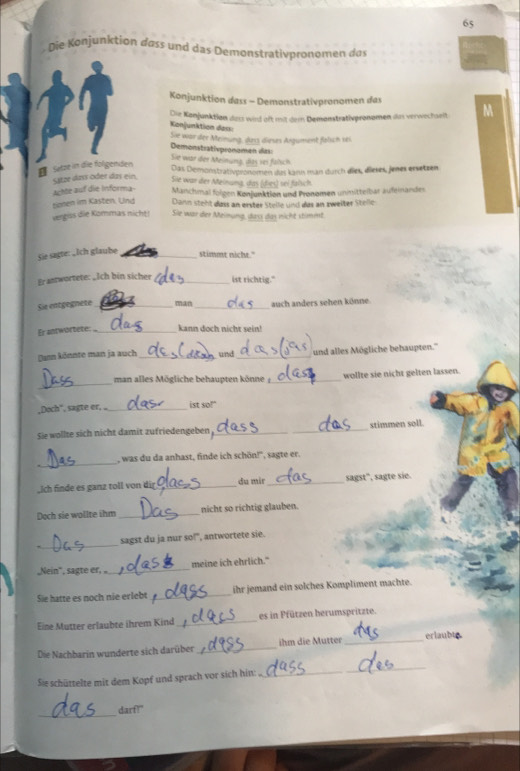 65
Die Konjunktion dass und das Demonstrativpronomen das
Konjunktion dass – Demonstrativpronomen das
M
Die Konjunktion dass wird oft mit dem Demonstrativpronomen das verwechselt:
Konjunktion dass:
Sie war der Meinung, dass dieses Argument falsch sei.
Demonstrativpronomen das:
Sie war der Meinung, das sei falsch.
Das Demonstrativpronomen das kann man durch dies, dieses, jenes ersetzen:
Sie war der Meinung, das (dies) sei falsch.
Manchmal folgen Konjunktion und Pronomen unmittelbar aufeinander.
Dann steht dass an erster Stelle und das an zweiter Stelle:
Sie war der Meinung, dass das nicht stimmt.
Setze in die folgenden
Sätze dass oder das ein.
Achte auf die Informa-
tionen im Kasten. Und
vergiss die Kommas nicht!
Sie sagte: „Ich glaube stimmt nicht."
Er antwortete: „Ich bin sicher das ist richtig."
Sie entgegnete man das auch anders sehen könne.
Er antwortete: „ das kann doch nicht sein!
Dann könnte man ja auch das und das und alles Mögliche behaupten."
Dass man alles Mögliche behaupten könne, das wollte sie nicht gelten lassen.
„Doch", sagte er, „ das ist so!"
Sie wollte sich nicht damit zufriedengeben, dass das stimmen soll.
„ Das, was du da anhast, finde ich schön!", sagte er.
„Ich finde es ganz toll von dir, dass du mir das sagst", sagte sie.
Doch sie wollte ihm Das nicht so richtig glauben.
„ Das sagst du ja nur so!", antwortete sie.
„Nein", sagte er, „ , das meine ich ehrlich."
Sie hatte es noch nie erlebt, dass ihr jemand ein solches Kompliment machte.
Eine Mutter erlaubte ihrem Kind, dass es in Pfützen herumspritzte.
Die Nachbarin wunderte sich darüber, dass ihm die Mutter das erlaubte.
Sie schüttelte mit dem Kopf und sprach vor sich hin: „ dass das
das darf?"